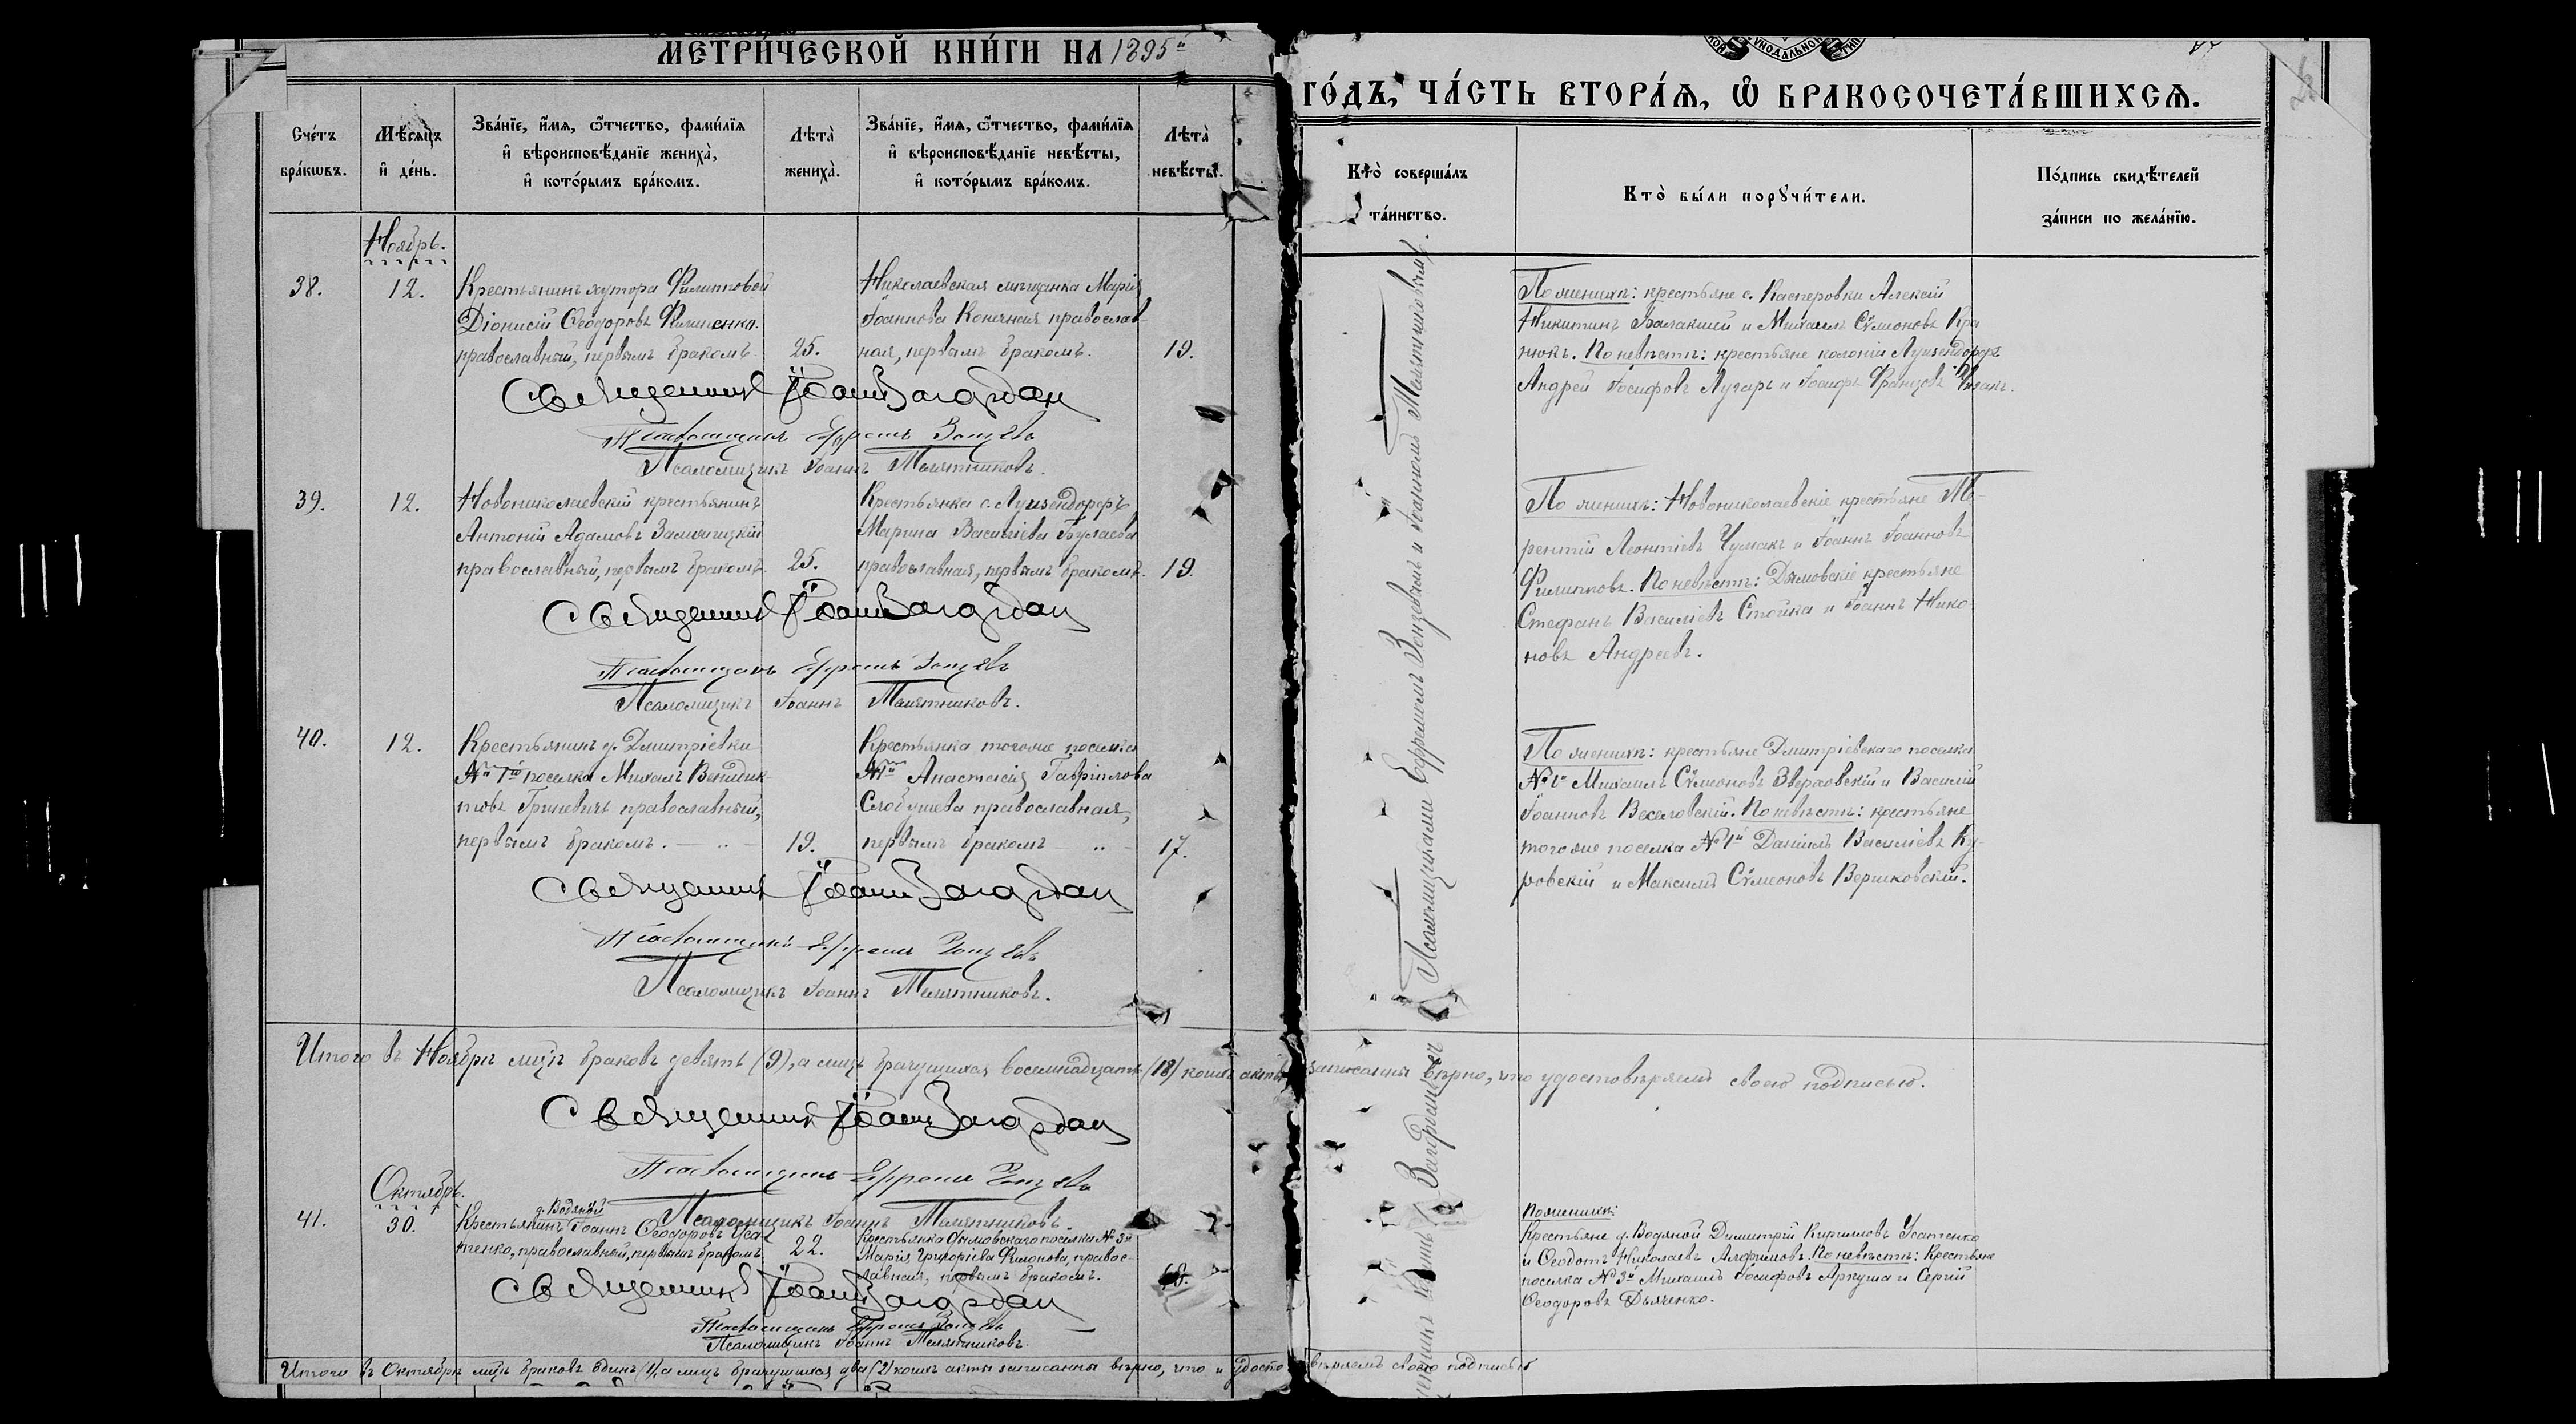 МЕТРИ́ЧЕСКОЙ КНИ́ГИ НА 1895й
ГО́ДЪ, ЧА́СТЬ ВТОРА́Ѧ, Ѿ БРАКОСОЧЕТА́ВШИХСѦ.
Сче́тъ бра́кѡвъ.
Мѣ́сѧцъ и҆ де́нь.
Зва́нїе, и҆́мѧ, ѻ҆́тчество, фами́лїѧ
и҆ вѣроисповѣ́данїе жениха̀,
и҆ кото́рымъ бра́комъ.
Лѣта̀ жениха̀.
Зва́нїе, и҆́мѧ, ѻ҆́тчество, фами́лїѧ
и҆ вѣроисповѣ́данїе невѣ́сты,
и҆ кото́рымъ бра́комъ.
Лѣта̀ невѣ́сты.
Кто̀ соверша́лъ та́инство.
Кто̀ бы́ли порꙋчи́тели.
По́дпись свидѣ́телей
за́писи по жела́нїю.
Ноябрь.
38.
12.
Крестьянинъ хутора Филипповой
Діонисій Ѳеодоровъ Филипенко.
православный, первымъ бракомъ.
25.
Николаевская мѣщанка Марія
Іоаннова Конечная православ-
ная, первымъ бракомъ.
19.
По женихѣ: крестьяне с. Касперовки Алексій
Никитинъ Балакшей и Михаилъ Сѵмеоновъ Кра
нюкъ. По невѣстѣ: крестьяне колоніи Луизендорфъ
Андрей Іосифовъ Лучаръ и Іосифъ Францовъ
Священникъ Іоаннъ Загордан
Псаломщикъ Ефремъ Зонзевъ
Псаломщикъ Іоаннъ Памятниковъ.
39.
12.
Новониколаевскій крестьянинъ
Антоній Адамовъ
православный, первымъ бракомъ.
25.
Крестьянка с. Луизендорфъ
Марина Василіева Булаева
православная, первымъ бракомъ.
19.
По женихѣ: Новониколаевскіе крестьяне Те-
рентій Леонтіевъ Чумакъ и Іоаннъ Іоанновъ
Филипповъ. По невѣстѣ: Дымовскіе крестьяне
Стефанъ Василіевъ Стойка и Іоаннъ Нико
новъ Андреевъ.
Священникъ Іоаннъ Загордан
Псаломщикъ Ефремъ Зонзевъ
Псаломщикъ Іоаннъ Памятниковъ.
40.
12.
Крестьянинъ д. Дмитріевки
№ 1го поселка Михаилъ Венидик-
товъ Гриневичъ православный,
первымъ бракомъ.
19.
Крестьянка тогоже поселка
№1й Анастасія Гавріилова
Слободчева православная,
первымъ бракомъ
17.
По женихѣ: крестьяне Дмитріевскаго поселка
№ 1й Михаилъ Сѵмеоновъ Зверховскій и Василій
Іоанновъ Веселовскій. По невѣстѣ: крестьяне
тогоже поселка № 1й Даніилъ Василіевъ Ку-
ровскій и Максимъ Сѵмеоновъ Вершковскій.
Священникъ Іоаннъ Загордан
Псаломщикъ Ефремъ Зонзевъ
Псаломщикъ Іоаннъ Памятниковъ.
Итого въ Ноябрѣ мцѣ браковъ девять (9), а лицъ брачущихся восемнадцать (18) коихъ акты записанны вѣрно, что удостовѣряемъ своею подписью.
Священникъ Іоаннъ Загордан
Псаломщикъ Ефремъ Зонзевъ
Псаломщикъ Іоаннъ Памятниковъ.
Октябрь.
41.
30.
д. Водяной
Крестьянинъ Іоаннъ Ѳеодоровъ Усa-
тенко, православный, первымъ бракомъ
22.
Крестьянка Дымовскаго поселка № 3й
Марія Григоріева Филонова, правос-
лавная, первымъ бракомъ.
18.
По женихѣ:
Крестьяне д. Водяной Димитрій Кирилловъ Усатенко
и Ѳеодотъ Николаевъ Алфимовъ. По невѣстѣ: Крестьяне
поселка № 3й Михаилъ Іосифовъ Аркуша и Сергій
Ѳеодоровъ Дьяченко.
Священникъ Іоаннъ Загордан
Псаломщикъ Ефремъ Зонзевъ
Псаломщикъ Іоаннъ Памятниковъ.
Итого въ Октябрѣ мцѣ браковъ одинъ (1), а лицъ брачущихся два (2) коихъ акты записанны вѣрно, что и удостовѣряемъ своею подписью
Псаломщиками Ефремомъ Зонзевымъ и Іоанномъ Памятниковымъ.